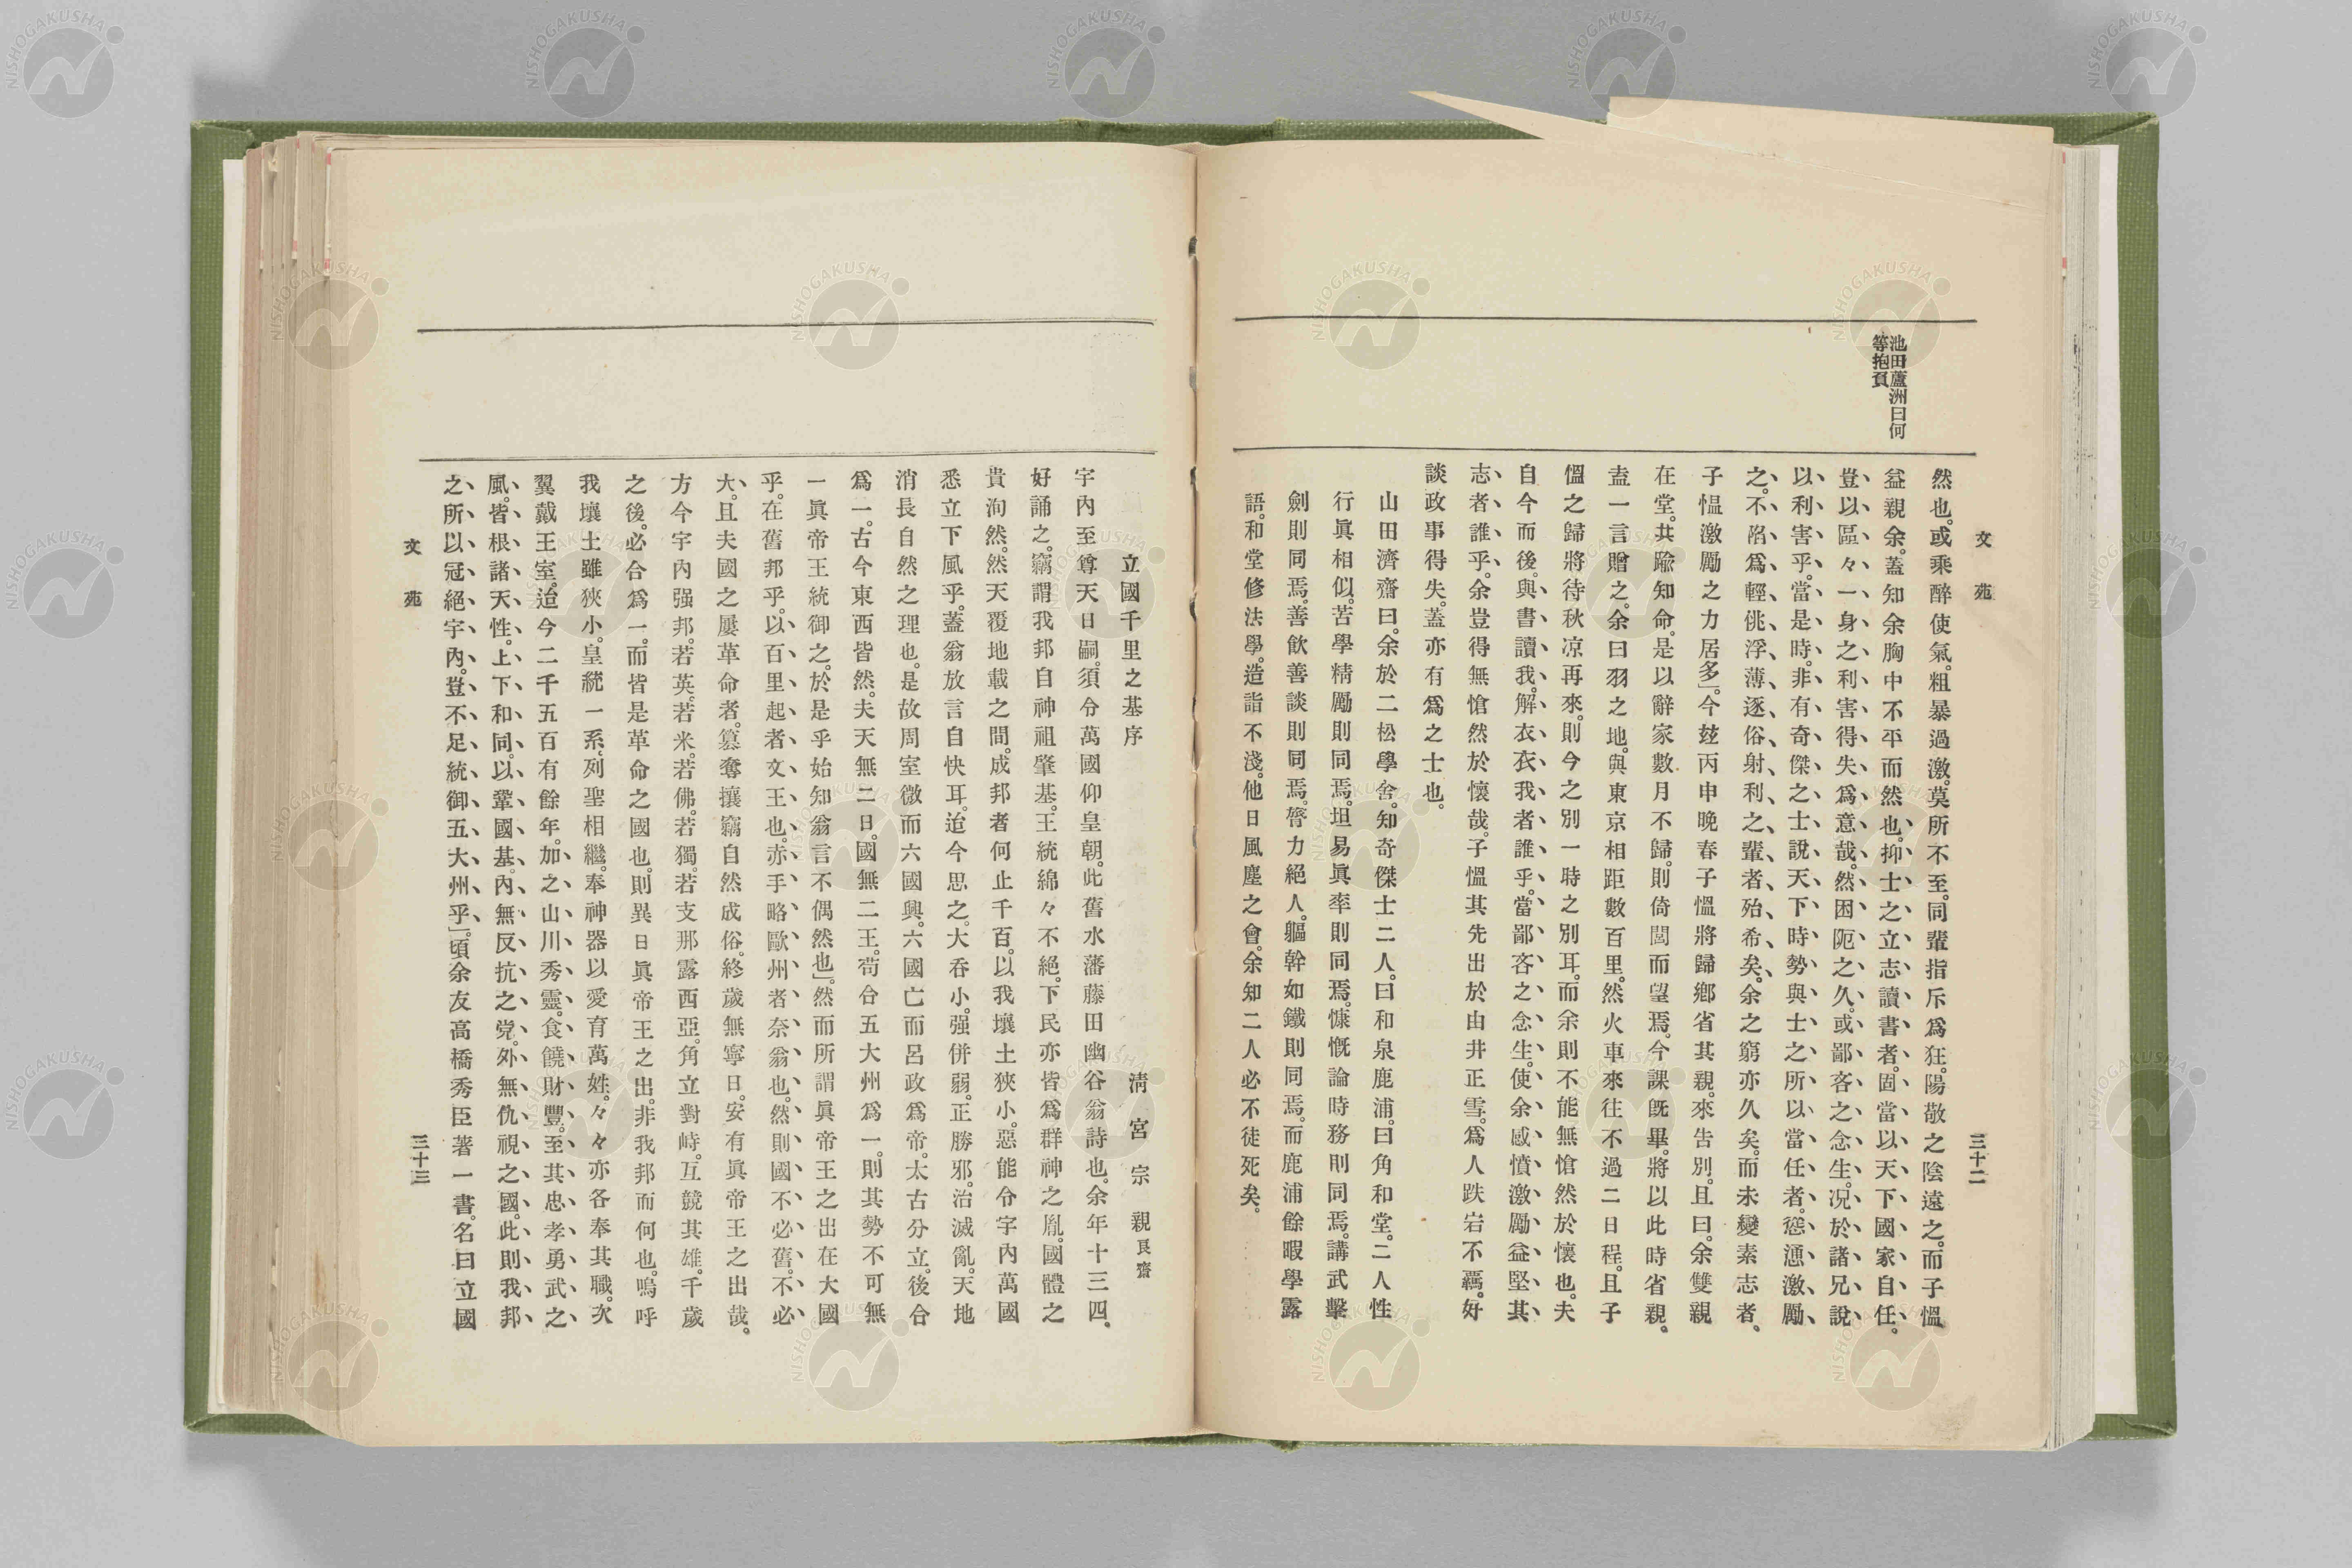 文苑
三十二
池田蘆洲曰何
等抱負
然也。或乘醉使氣。粗暴過激。莫所不至。同輩指斥爲狂。陽敬之陰遠之。而子慍
益親余。蓋知余胸中不平而然也。抑士之立志讀書者。固當以天下國家自任。
豈以區々一身之利害得失爲意哉。然困阨之久。或鄙吝之念生。况於諸兄說
以利害乎。當是時。非有奇傑之士說天下時勢與士之所以當任者。慫慂激勵
之。不陷爲輕佻浮薄逐俗射利之輩者殆希矣。余之窮亦久矣。而未變素志者。
子慍激勵之力居多」。今玆丙申晩春子慍將歸鄕省其親。來告別。且曰。余雙親
在堂。共踰知命。是以辭家數月不歸。則倚閭而望焉。今課既畢。將以此時省親。
盍一言贈之。余曰羽之地。與東京相距數百里。然火車來往不過二日程。且子
慍之歸將待秋凉再來。則今之別一時之別耳。而余則不能無愴然於懷也。夫
自今而後。與書讀我。解衣衣我者誰乎。當鄙吝之念生。使余感憤激勵益堅其
志者誰乎。余豈得無愴然於懷哉。子慍其先出於由井正雪。爲人跌宕不羈。好
談政事得失。蓋亦有爲之士也。
山田濟齋曰。余於二松學舍。知奇傑士二人。曰和泉鹿浦。曰角和堂。二人性
行眞相似。苦學精勵則同焉。坦易眞率則同焉。慷慨論時務則同焉。講武擊
劍則同焉。善飮善談則同焉。膂力絕人。軀幹如鐵則同焉。而鹿浦餘暇學露
語。和堂修法學。造詣不淺。他日風塵之會。余知二人必不徒死矣。
立國千里之基序
淸宮宗親 艮齋
宇內至尊天日嗣。須令萬國仰皇朝。此舊水藩藤田幽谷翁詩也。余年十三四。
好誦之。竊謂我邦自神祖肇基。王統綿々不絕。下民亦皆爲群神之胤。國體之
貴洵然。然天覆地載之間。成邦者何止千百。以我壤土狹小。惡能令宇內萬國
悉立下風乎。蓋翁放言自快耳。迨今思之。大吞小。强併弱。正勝邪。治滅亂。天地
消長自然之理也。是故周室微而六國興。六國亡而呂政爲帝。太古分立。後合
爲一。古今東西皆然。夫天無二日。國無二王。苟合五大州爲一。則其勢不可無
一眞帝王統御之。於是乎始知翁言不偶然也」。然而所謂眞帝王之出在大國
乎。在舊邦乎。以百里起者文王也。赤手略歐州者奈翁也。然則國不必舊。不必
大。且夫國之屢革命者。簒奪攘竊自然成俗。終歲無寧日。安有眞帝王之出哉。
方今宇內强邦。若英。若米。若佛。若獨。若支那露西亞。角立對峙。互競其雄。千歲
之後。必合爲一。而皆是革命之國也。則異日眞帝王之出。非我邦而何也。嗚呼
我壤土雖狹小。皇統一系。列聖相繼。奉神器以愛育萬姓。々々亦各奉其職。次
翼戴王室。迨今二千五百有餘年。加之山川秀靈。食饒財豐。至其忠孝勇武之
風。皆根諸天性。上下和同。以鞏國基。內無反抗之党。外無仇視之國。此則我邦
之所以冠絕宇內。豈不足統御五大州乎」。頃余友高橋秀臣著一書。名曰立國
文苑
三十三
NISHOGAKUSHA